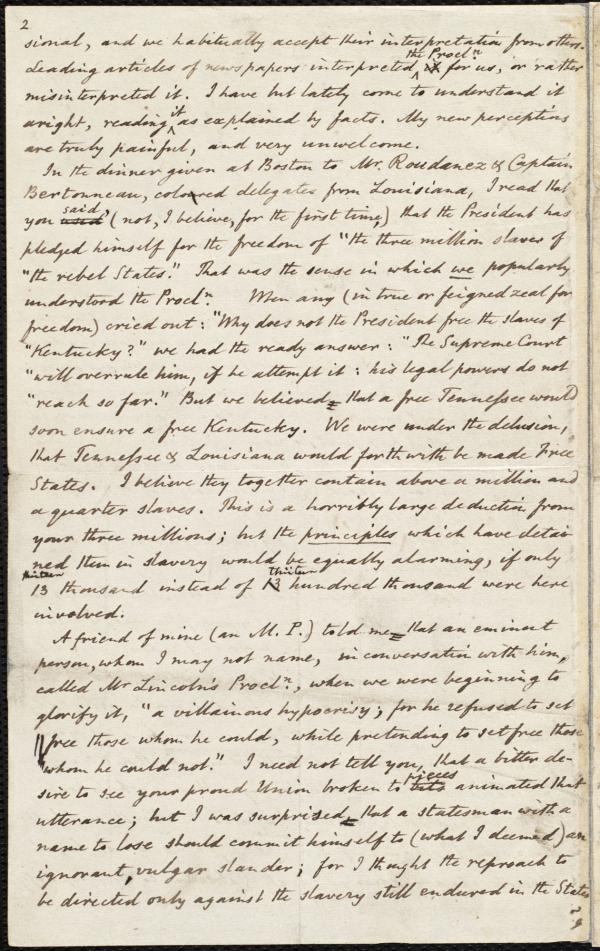 2
sional, and we habitually accept their interpretation from others.
Leading articles of newspapers interpreted the Procln for us, or rather
misinterpreted it. I have but lately come to understand it
aright, reading it as explained by facts. My new perceptions
are truly painful, and very unwelcome.
In the dinner given at Boston to Mr. Roudanez & Captain
Bertonneau, coloured delegates from Louisiana, I read that
you said, (not, I believe, for the first time,) that the President has
pledged himself for the freedom of "the three million slaves of
"the rebel States." That was the sense in which we popularly
understood the Procln. When any (in true or feigned zeal for
freedom) cried out: "Why does not the President free the slaves of
"Kentucky?" we had the ready answer: "The Supreme Court
"will overrule him, if he attempt it: his legal powers do not
"reach so far." But we believed that a free Tennessee would
soon ensure a free Kentucky. We were under the delusion,
that Tennessee & Louisiana would forthwith be made Free
States. I believe they together contain above a million and
a quarter slaves. This is a horribly large deduction from
your three millions; but the principles which have detai-
ned them in slavery would be equally alarming, if only
thirteen thousand instead of thirteen hundred thousand were here
involved.
A friend of mine (an M.P.) told me that an eminent
person, whom I may not name, in conversation with him,
called Mr Lincoln's Procln., when we were beginning to
glorify it, "a villainous hypocrisy; for he refused to set
free those whom he could, while pretending to set free those
whom he could not." I need not tell you, that a bitter de-
sire to see your proud Union broken to pieces animated that
utterance; but I was surprised that a statesman with a
name to lose should commit himself to (what I deemed) an
ignorant, vulgar slander; for I thought the reproach to
be directed only against the slavery still endured in the States